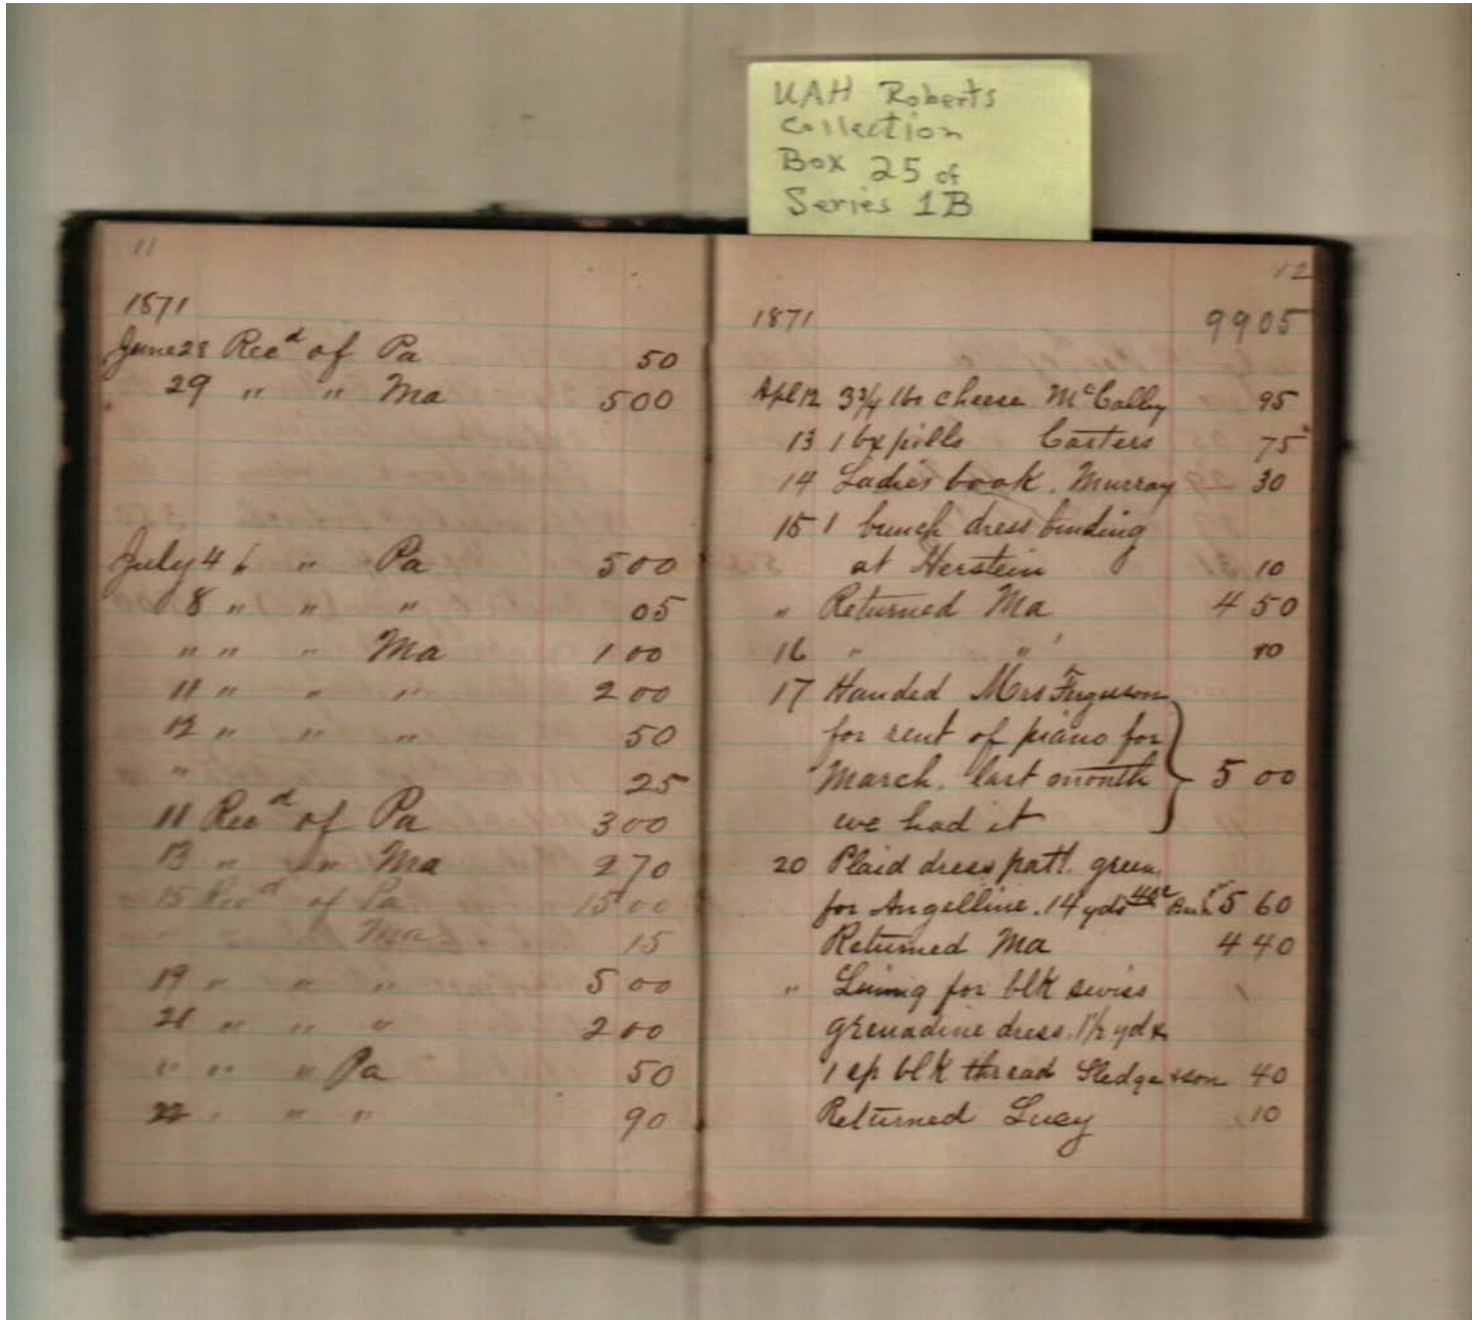 UAH Roberts
Collection
Box 25 of
Series 1B
11
1871
June 28 Recd of Pa 50
29 " " Ma 500
July 4 " Pa 500
8 " " " 05
" " " Ma 1 00
11 " " " 2 00
12 " " " 50
" 25
11 Recd of Pa 3 00
13 " " Ma 2 70
15 Recd of Pa 15 00
Ma 15
19 " " " 5 00
21 " " " 2 00
" " " Pa 50
22 " " " 90
12
1871 9905
Apl 12 3 3/4 lbs cheese McCalley 95
13 1 bx pills Carters 75
14 Ladies book. Murray 30
15 1 bunch dress binding
at Herstein 10
" Returned Ma 4 50
16 " " 10
17 Handed Mrs Ferguson
for rent of piano for
March. last month 5 00
we had it
20 Plaid dress patt. green
for Angelline. 14 yds 40c 5 60
Returned Ma 4 40
" Lining for blk swiss
grenadine dress. 1 1/2 yds
1 sp blk thread Sledge & son 40
Returned Lucy 10